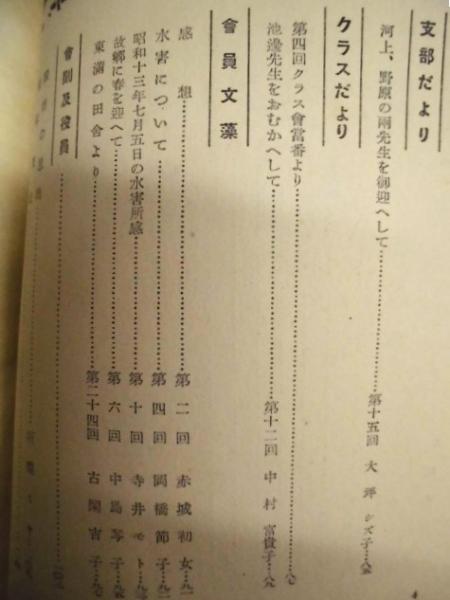 支部だより
河上、野原の兩先生を御迎へして……第十五回 大坪シズ子…
クラスだより
第四回クラス會當番より……
池邊先生をおむかへして……第十二回 中村富貴子…
會員文藻
感想……第二回 赤城初女…九一
水害について……第四回 岡橋節子…
昭和十三年七月五日の水害所感……第十回 寺井モト…
故鄕に春を迎へて……第六回 中島琴子…
東滿の田舍より……第二十四回 古閑吉子…九七
會則及役員……
4